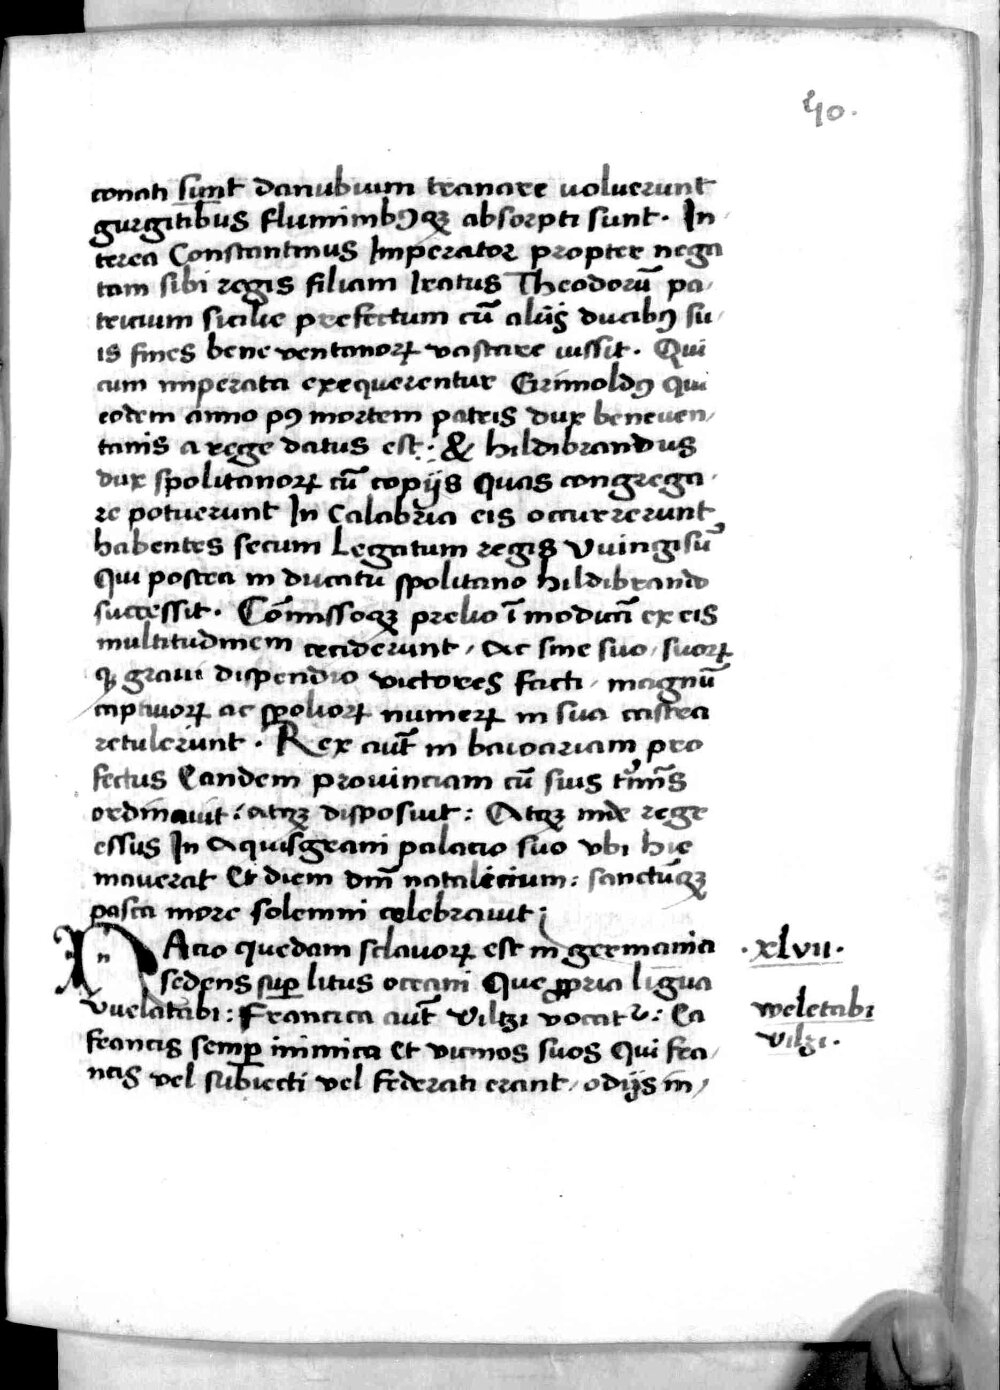 40.
conati sunt danubium tranare voluerunt
gurgitibus fluminibꝰqꝫ absorpti sunt. In
terea Constantinus Imperator propter nega
tam sibi regis filiam Iratus Theodorū pa/
tricium sicilie prefectum cū alijs ducibꝰ su/
is fines bene ventanorꝝ vastare iussit. Qui
cum imperata exequerentur Grimoldꝰ qui
eodem anno pꝰ mortem patris dux beneven/
tanis a rege datus est: & hildibrandus
dux spolitanorꝝ cū copijs quas congrega/
re potuerunt In Calabria eis occurrerunt
habentes secum Legatum regis Vuingisū
Qui postea in ducatu spolitano hildibrando
successit. Cōmissoqꝫ prelio īmodicā ex eis
multitudinem ceciderunt, ac sine suo, suorꝝ
qꝫ gravi dispendio victores facti, magnū
captivorꝝ ac spoliorꝝ numerꝝ in sua castra
retulerunt. Rex aut̄ in baioariam pro
fectus Eandem provinciam cū suis t̄mis
ordinavit: atqꝫ disposuit: Atqꝫ inde regr
essus In aquisgrani palacio suo ubi hie
maverat Et diem dm̄ natalicium: sanctūqꝫ
pasca more solemni celebravit;
NAcio quedam sclavorꝝ est in germania .xlvii.
sedens suꝑ litus oceani Que ꝓpria ligua
vvelatabi: Francica aut̄ viltzi vocatᷣ: Ea weletabi
francis semꝑ inimica Et vicinos suos Qui fra/ vilzi.
ncis vel subiecti vel federati erant, odijs in/